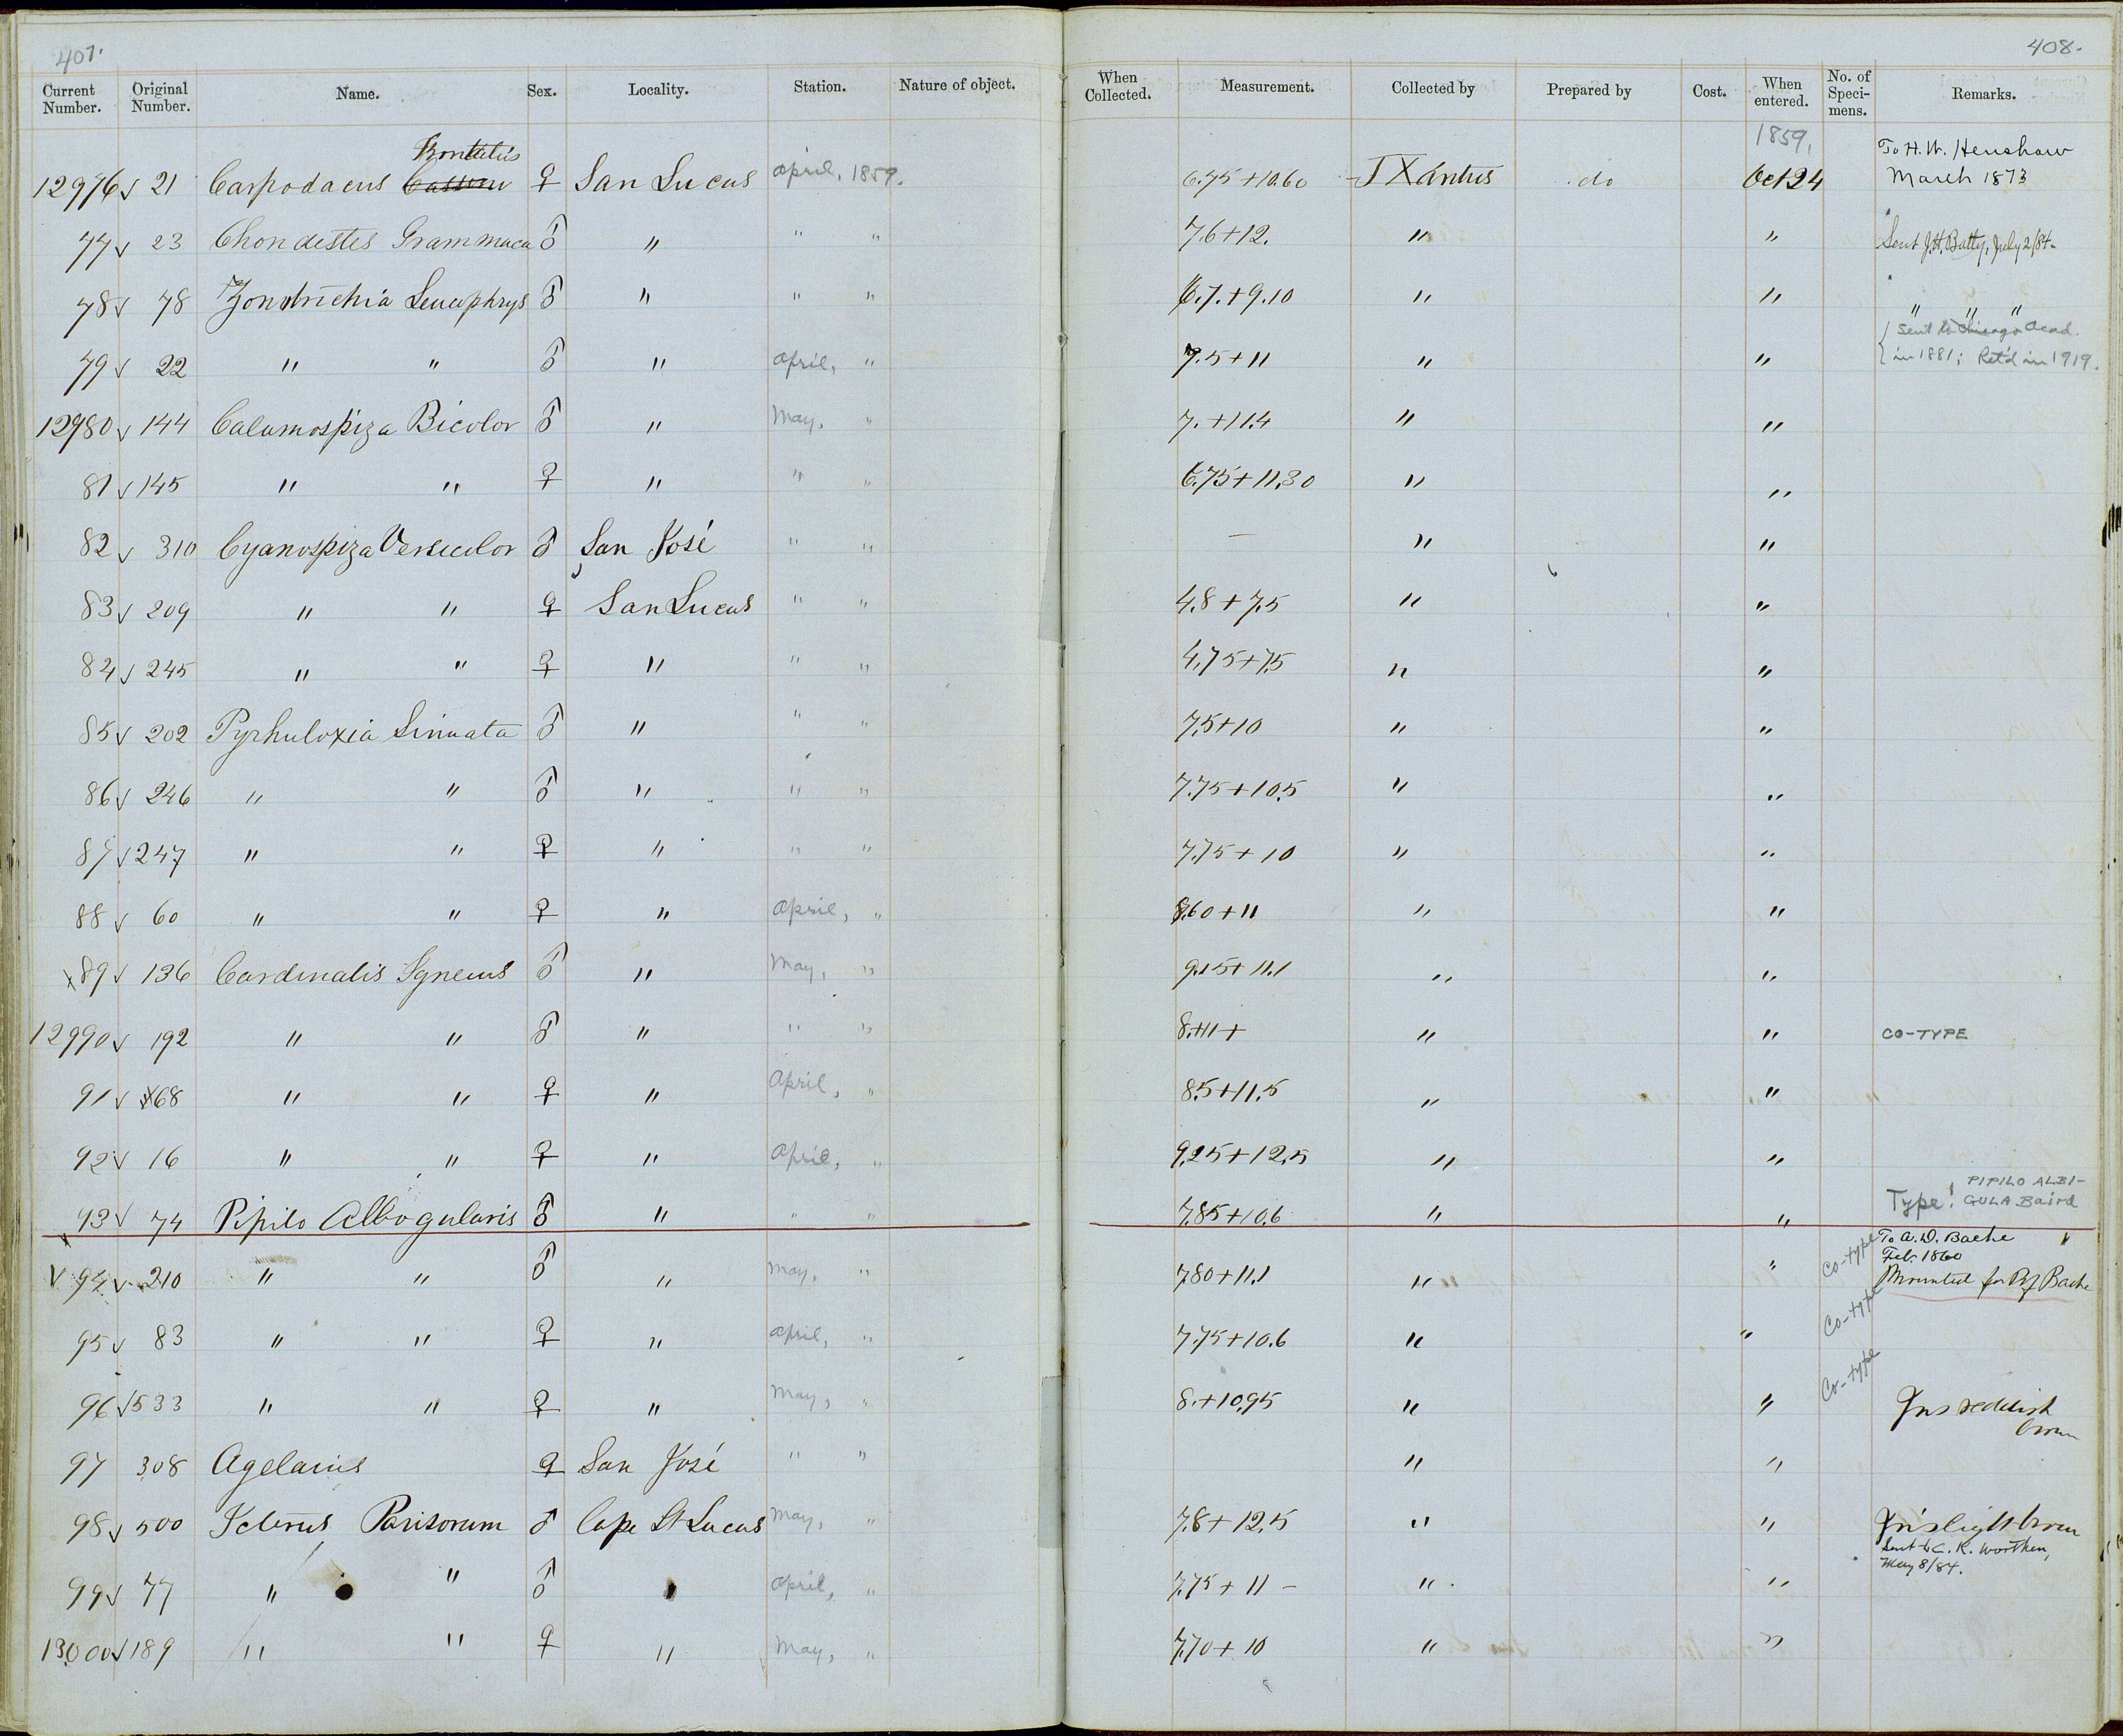 407.
408.
Current Number. Original Number. Name. Sex. Locality. Station. Nature of object. When Collected. Measurement. Collected by Prepared by Cost. When entered. No. of Speci-mens. Remarks.
frontalis 1859, To H. W. Henshaw
12976 √ 21 Carpodacus Cassini ♀ San Lucas April, 1859. 6.75+10.60 J Xántus do Oct 24 March 1873
77 √ 23 Chondestes Grammaca ♂ " " " 7.6+12. " " Sent J.H. Batty, July 2/84.
78 √ 78 Zonotrichia Leucophrys ♂ " " " 6.7.+9.10 " " " " "
{ Sent to Chicago Acad.
79 √ 22 " " ♂ " April, " 7.5+11 " " in 1881; Ret'd in 1919.
12980 √ 144 Calamospiza Bicolor ♂ " May, " 7.+11.4 " "
81 √ 145 " " ♀ " " " 6.75+11.30 " "
82 √ 310 Cyanospiza Versicolor ♂ San José " " – " "
83 √ 209 " " ♀ San Lucas " " 4.8+7.5 " "
84 √ 245 " " ♀ " " " 4.75+7.5 " "
85 √ 202 Pyrhuloxia Sinuata ♂ " " " 7.5+10 " "
86 √ 246 " " ♂ " " " 7.75+10.5 " "
87 √ 247 " " ♀ " " " 7.75+10 " "
88 √ 60 " " ♀ " April, " 8.60+11 " "
x 89 √ 136 Cardinalis Igneus ♂ " May, " 9.15+11.1 " "
12990 √ 192 " " ♂ " " " 8.+11+ " " CO-TYPE
91 √ 68 " " ♀ " April, " 8.5+11.5 " "
92 √ 16 " " ♀ " April, " 9.25+12.5 " "
93 √ 74 Pipilo Albogularis ♂ " " " 7.85+10.6 " " Type! PIPILO ALBI-GULA Baird
To A. D. Bache
Feb. 1860
√ 94 √ 210 " " ♂ " May, " 7.80+11.1 " " Co-type Mounted for Prf Bache
95 √ 83 " " ♀ " April, " 7.75+10.6 " " Co-type
96 √ 533 " " ♀ " May, " 8.+10.95 " " Co-type Iris reddish brown
97 308 Agelaius ♀ San José " " " "
98 √ 500 Icterus Parisorum ♂ Cape St Lucas May, " 7.8+12.5 " " Iris light brown
Sent to C. K. Worthen,
May 8/84.
99 √ 77 " " ♂ " April, " 7.75+11 – " "
13000 √ 189 " " ♀ " May, " 7.70+10 " "